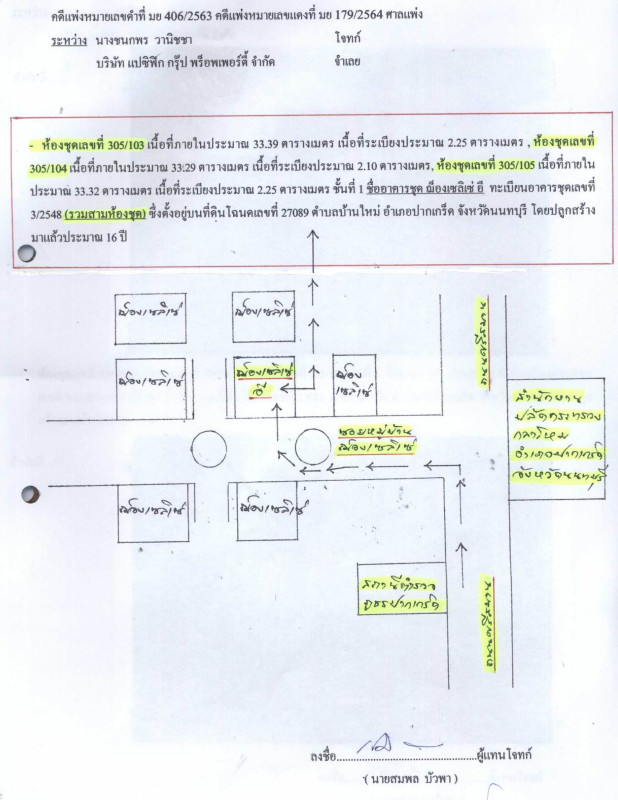 คดีแพ่งหมายเลขดำที่ มย 406/2563 คดีแพ่งหมายเลขแดงที่ มย 179/2564 ศาลแพ่ง
ระหว่าง นางชนกพร วานิชชา โจทก์
บริษัท แปซิฟิก กรุ๊ป พร็อพเพอร์ตี้ จำกัด จำเลย
- ห้องชุดเลขที่ 305/103 เนื้อที่ภายในประมาณ 33.39 ตารางเมตร เนื้อที่ระเบียงประมาณ 2.25 ตารางเมตร , ห้องชุดเลขที่
305/104 เนื้อที่ภายในประมาณ 33.29 ตารางเมตร เนื้อที่ระเบียงประมาณ 2.10 ตารางเมตร, ห้องชุดเลขที่ 305/105 เนื้อที่ภายใน
ประมาณ 33.32 ตารางเมตร เนื้อที่ระเบียงประมาณ 2.25 ตารางเมตร ชั้นที่ 1 ชื่ออาคารชุด ฌ็องเซลิเซ่ อี ทะเบียนอาคารชุดเลขที่
3/2548 (รวมสามห้องชุด) ซึ่งตั้งอยู่บนที่ดินโฉนดเลขที่ 27089 ตำบลบ้านใหม่ อำเภอปากเกร็ด จังหวัดนนทบุรี โดยปลูกสร้าง
มาแล้วประมาณ 16 ปี
ฌ็องเซลิเซ่
ฌ็องเซลิเซ่
ฌ็องเซลิเซ่
ฌ็องเซลิเซ่
อี
ฌ็อง
เซลิเซ่
ซอยหมู่บ้าน
ฌ็องเซลิเซ่
สำนักงาน
ปลัดกระทรวง
กลาโหม
อำเภอปากเกร็ด
จังหวัดนนทบุรี
ฌ็องเซลิเซ่
ฌ็องเซลิเซ่
สถานีตำรวจ
ภูธรปากเกร็ด
ลงชื่อ..........ผู้แทนโจทก์
( นายสมพล บัวพา )